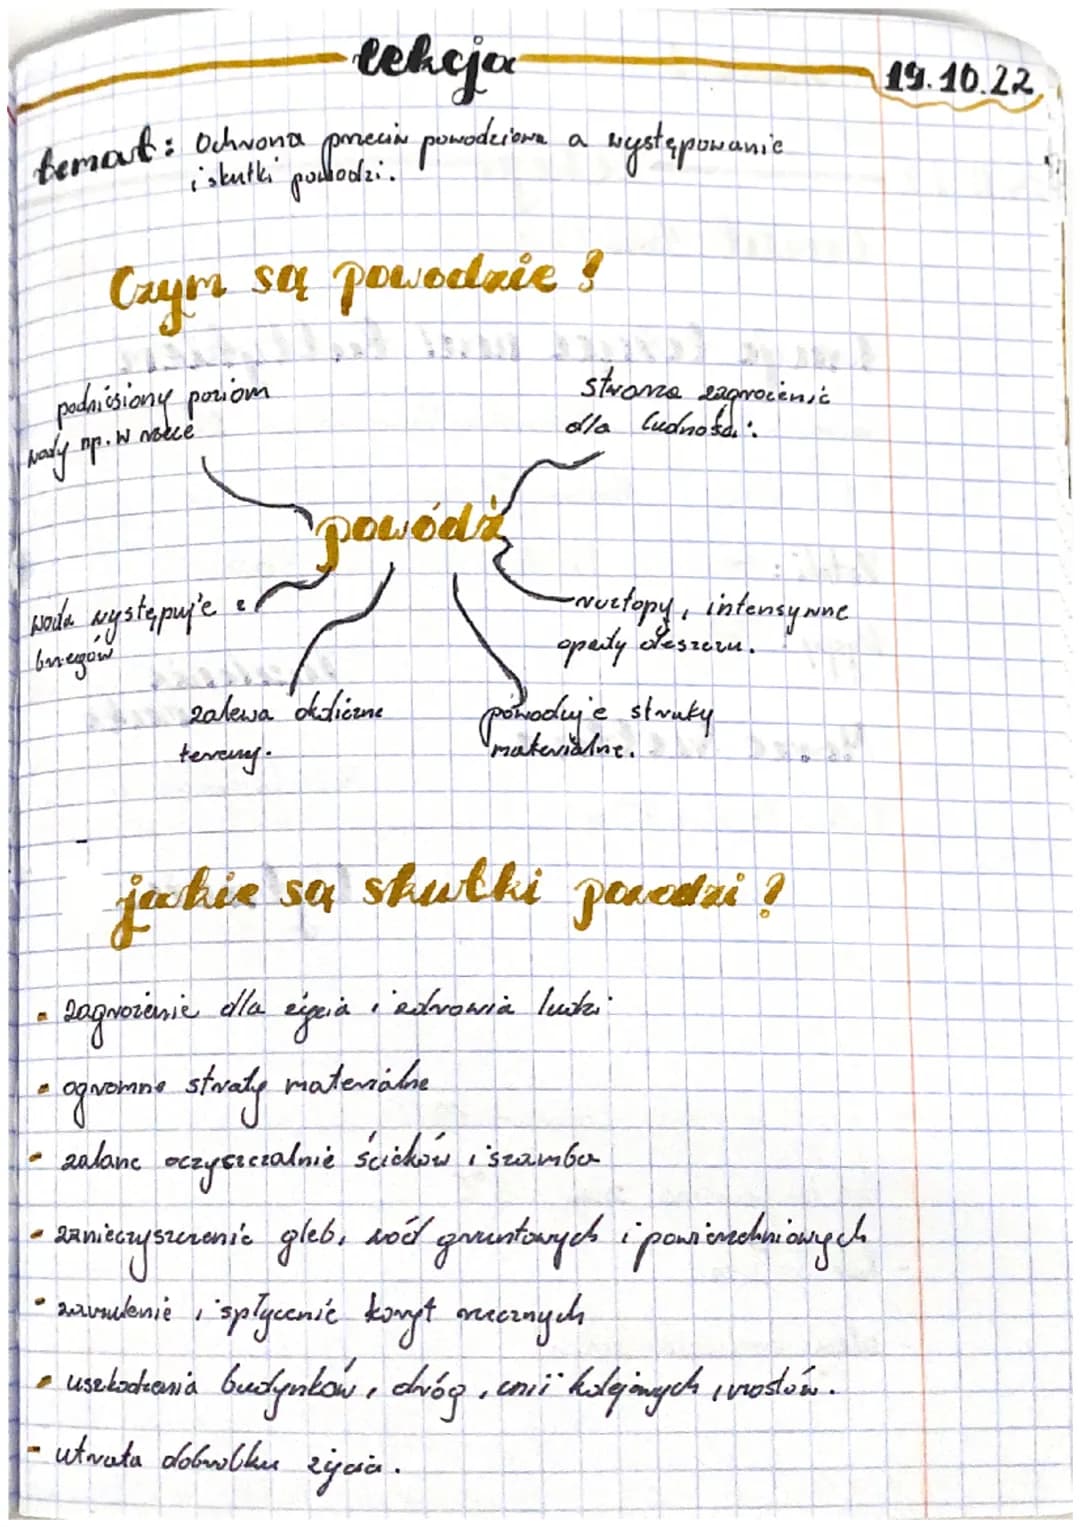 lekcja
19.10.22
temat: Ochrona przeciw powodziowa a występowanie
i skutki powodzi.
Czym są powodzie?
podniesiony poziom
wody np. w rzece
stwarza zagrożenie
dla ludności.
powódź
woda występuje z
brzegów
roztopy, intensywne
opady deszczu.
zalewa okoliczne
tereny.
powoduje straty
materialne.
jakie są skutki powodzi?
- zagrożenie dla życia i zdrowia ludzi
- ogromne straty materialne
- zalane oczyszczalnie ścieków i szamba
- zanieczyszczenie gleb, wód gruntowych i powierzchniowych
- zamulenie i spłycenie koryt rzecznych
- uszkodzenia budynków, dróg, linii kolejowych, mostów.
- utrata dobrobku życia.